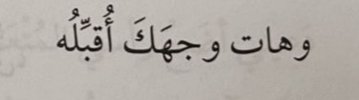 وهات وجهَكَ أُقبِّلُه